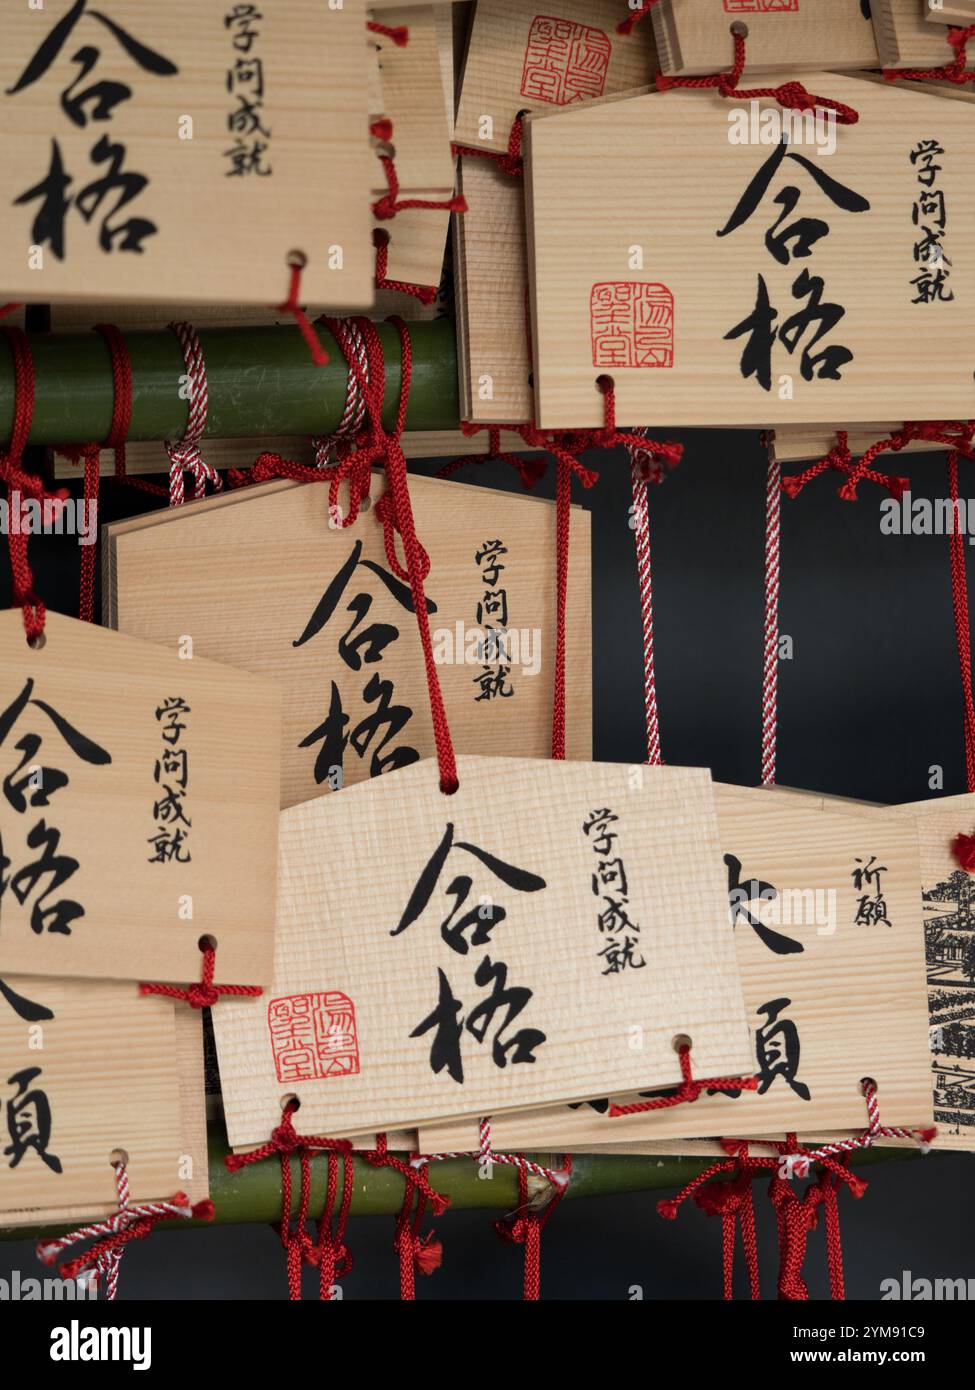 合格
学問成就
湯島
聖堂
合格
学問成就
湯島
聖堂
合格
学問成就
合格
学問成就
合格
学問成就
湯島
聖堂
大願
祈願
願
alamy
Image ID: 2YM91C9
www.alamy.com